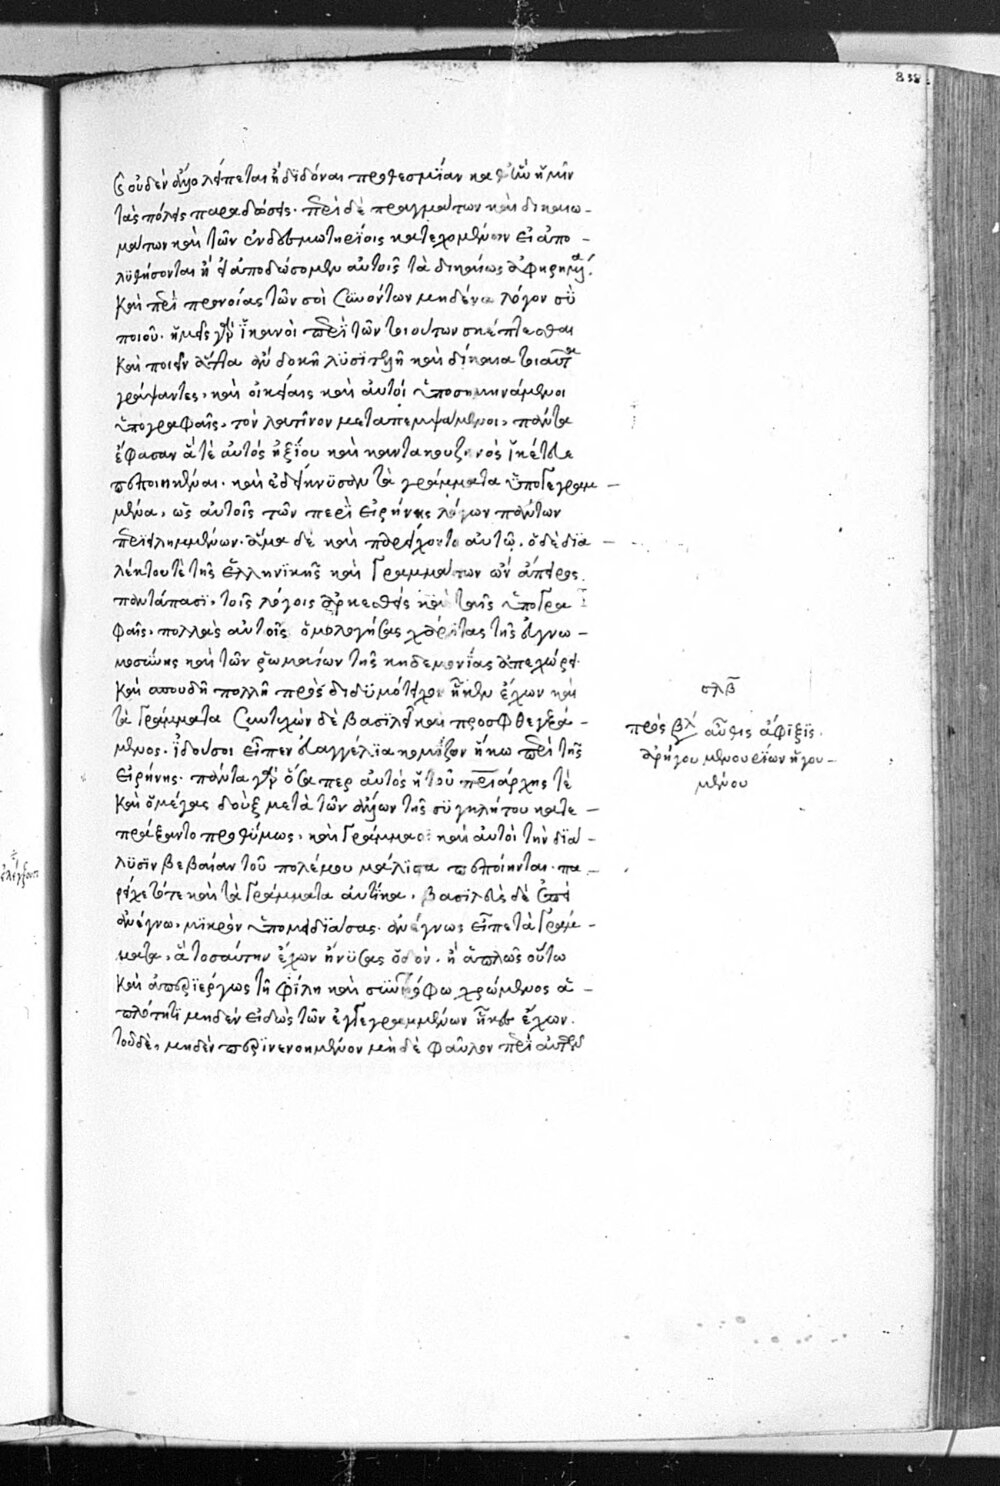 838
καὶ οὐδὲν ἄλλο λείπεται ἢ διδόναι προθεσμίαν καθ' ἣν ἡμῖν
τὰς πόλεις παραδώσεις. περὶ δὲ πραγμάτων καὶ δικαιω-
μάτων καὶ τῶν ἐν δεσμωτηρίοις κατεχομένων εἰ ἀπο-
λυθήσονται ἢ εἰ ἀποδώσομεν αὐτοῖς τὰ δικαίως ἀφῃρημένα.
καὶ περὶ προνοίας τῶν σοὶ συνόντων μηδένα λόγον σὺ
ποιοῦ. ἡμεῖς γὰρ ἱκανοὶ περὶ τῶν τοιούτων σκέπτεσθαι
καὶ ποιεῖν ἅττα ἂν δοκῇ λυσιτελῆ καὶ δίκαια τοιαῦτα
γράψαντες, καὶ οἰκείαις καὶ αὐτοὶ ὑποσημηνάμενοι
ὑπογραφαῖς, τὸν λατῖνον μεταπεμψάμενοι, πάντα
ἔφασαν ἅ τε αὐτὸς ἠξίου καὶ καντακουζηνὸς ἱκέτευε
πεποιηκέναι. καὶ ἐδείκνυσαν τὰ γράμματα ὑπογεγραμ-
μένα, ὡς αὐτοῖς τῶν περὶ εἰρήνης λόγων πάντων
περιειλημμένων. ἅμα δὲ καὶ παρείχοντο αὐτῷ. ὁ δὲ δια-
λέκτου τὲ τῆς ἑλληνικῆς καὶ γραμμάτων ὢν ἄπειρος
παντάπασι, τοῖς λόγοις ἀρκεσθεὶς καὶ ταῖς ὑπογρα
φαῖς, πολλὰς αὐτοῖς ὁμολογήσας χάριτας τῆς εὐγνω-
μοσύνης καὶ τῶν ῥωμαίων τῆς κηδεμονίας ἀπεχώρει.
καὶ σπουδῇ πολλῇ πρὸς διδυμότειχον ἧκεν ἔχων καὶ
τὰ γράμματα ἐντυχὼν δὲ βασιλεῖ καὶ προσφθεγξά-
μενος. ἰδού σοι εἶπεν εὐαγγέλια κομίζων ἥκω περὶ τῆς
εἰρήνης. πάντα γὰρ ὅσα περ αὐτὸς ᾔτου πατριάρχης τὲ
καὶ ὁ μέγας δοὺξ μετὰ τῶν ἄλλων τῆς συγκλήτου κατε-
πράξαντο προθύμως, καὶ γράμμασι καὶ αὐτοὶ τὴν διά-
λυσιν βεβαίαν τοῦ πολέμου μάλιστα πεποίηνται. πα-
ρείχετό τε καὶ τὰ γράμματα αὐτίκα. βασιλεὺς δὲ ἐπεὶ
ἀνέγνω, μικρὸν ὑπομειδιάσας. ἀνέγνως εἶπε τὰ γράμ-
ματα, ἃ τοσαύτην ἔχων ἤνυσας ὁδόν. ἢ ἁπλῶς οὕτω
καὶ ἀπεριέργως τῇ φίλῃ καὶ συντρόφῳ χρώμενος ἁ-
πλότητι μηδὲν εἰδὼς τῶν ἐγγεγραμμένων ἧκες ἔχων.
τοῦ δὲ, μηδὲν περινενοημένον μηδὲ φαῦλον περὶ αὐτῶν
σλβ
πρὸς βασιλέα αὖθις ἄφιξις
ἀρήγου μένου ρίων ἡγου-
μένου